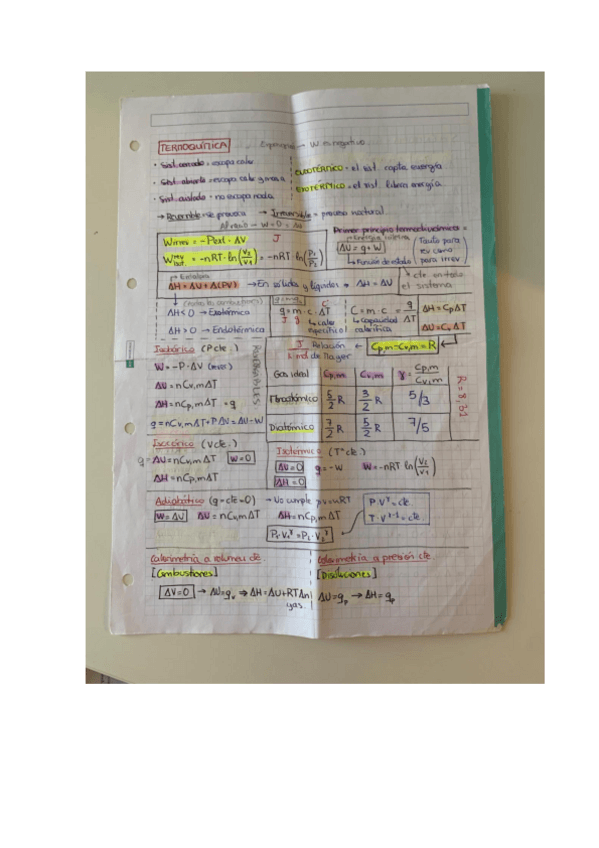 TERMOQUÍMICA
Expansión → W es negativo
· Sist. cerrado = escapa calor
· Sist. abierto = escapa calor y masa
· Sist. aislado = no escapa nada
ENDOTÉRMICO = el sist. capta energía
EXOTÉRMICO = el sist. libera energía
→ Reversible = se provoca → Irreversible = proceso natural
Al vacío → W = 0
Wirrev = -Pext · ΔV J
Wrev isot = -nRT · ln(V2/V1) = -nRT ln(P1/P2)
Primer principio termodinámica =
ΔU = q + W
→ Función de estado
Tanto para rev como para irrev
→ Entalpía
ΔH = ΔU + Δ(PV) → En sólidos y líquidos = ΔH = ΔU
→ cte en todo el sistema
ΔH < 0 → Exotérmico
ΔH > 0 → Endotérmica
q = m · c · ΔT
J g ↳ calor específico
C = m · c = q/ΔT
↳ capacidad calorífica
ΔH = Cp ΔT
ΔU = Cv ΔT
Isobárico (P cte.)
W = -P · ΔV
ΔU = nCv,mΔT
ΔH = nCp,mΔT = q
q = nCv,mΔT + PΔV = ΔU - W
REVERSIBLES
Relación de Mayer ← Cp,m - Cv,m = R
Gas ideal Cp,m Cv,m γ = Cp,m/Cv,m
Monoatómico 5/2 R 3/2 R 5/3
Diatómico 7/2 R 5/2 R 7/5
R = 8,31
Isocórico (V cte.)
q = ΔU = nCv,mΔT W = 0
ΔH = nCp,mΔT
Isotérmico (Tª cte.)
ΔU = 0 q = -W W = -nRT ln(V2/V1)
ΔH = 0
Adiabático (q = cte = 0) → No cumple pv = nRT
W = ΔU ΔU = nCv,mΔT ΔH = nCp,mΔT
P1 · V1^γ = P2 · V2^γ
P · V^γ = cte.
T · V^γ-1 = cte.
Calorimetría a volumen cte.
[Combustiones]
ΔV = 0 → ΔU = qv ⇒ ΔH = ΔU + RTΔn gas.
Calorimetría a presión cte.
[Disoluciones]
ΔU = qp → ΔH = qp